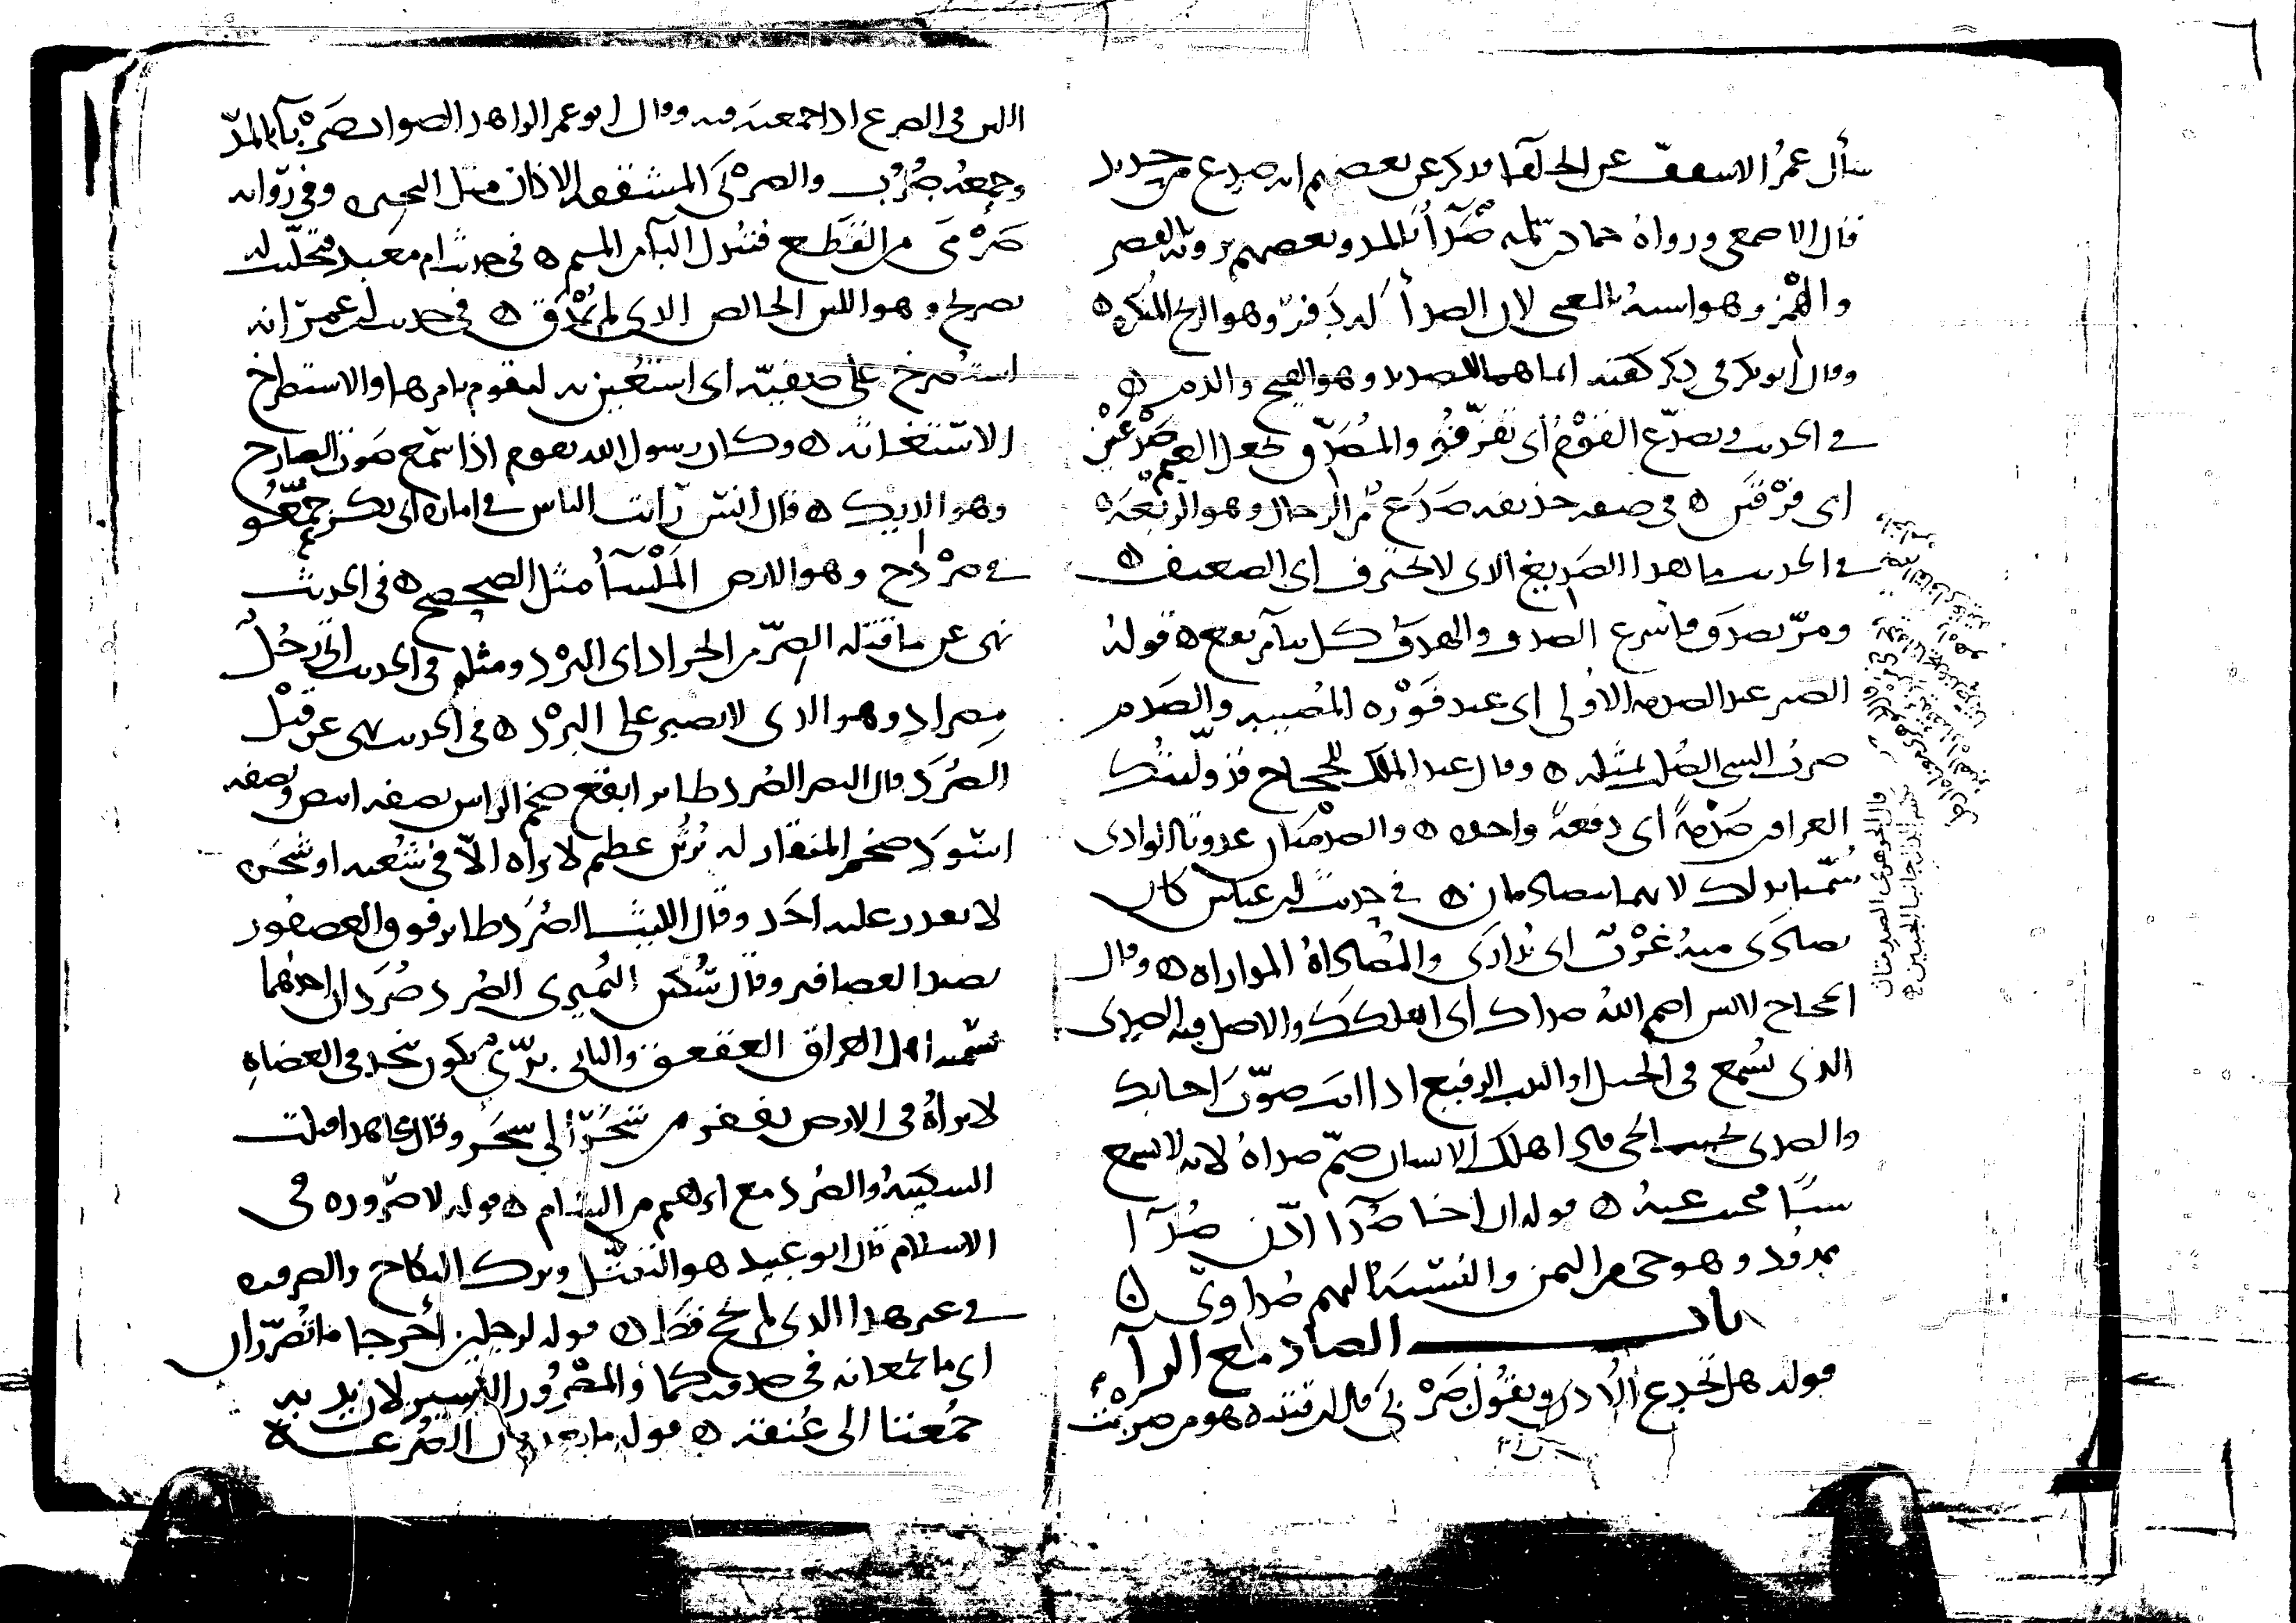 سأل عمر الاسقف عن الخلفا فذكر عن بعضهم انه صدع من حديد
قال الاصمعي ورواه حماد بن سلمة صدأ بالمد وبعضهم يرويه بالقصر
والهمز وهو اشبه بالمعنى لان الصدأ له ذفر وهو الريح المنكرة ٥
وقال أبو بكر في ذكر كفنه انما هما للصديد وهو القيح والدم ٥
في الحديث وتصدع القوم أي تفرقوا والمصدق يجعل الغنم صدعين
اي فرقتين ٥ في صفة حذيفة صدع من الرجال وهو الربعة
في الحديث ما هذا الصديغ الذي لا يحترف اي الضعيف ٥
ومر بصدف فاسرع الصدف والهدف كل بناء مرتفع ٥ قوله
الصبر عند الصدمة الاولى اي عند فورة المصيبة والصدم
ضرب الشي الصلب بمثله ٥ وقال عبد الملك للحجاج قد وليتك
العراقين صدمة اي دفعة واحدة ٥ والصدمتان عدوتا الوادي
سميتا بذلك لانهما يتصادمان ٥ في حديث ابن عباس كان
يصادى منه غرب اي تدارى والمصاداة المداراة ٥ وقال
الحجاج لانس اصم الله صداك أي اهلكك والاصل فيه الصدى
الذي يسمع في الجبل او البيت الرفيع اذا انت صوت اجابك
والصدى يجيب الحي فاذا هلك الانسان صم صداه لانه لا يسمع
شيئا فيجيب عنه ٥ قوله ان اخا صداء اذن صداء
ممدود وهو حي من اليمن والنسبة اليهم صداوي ٥
باب الصاد مع الراء
قوله هل تجدع الاذن وتقول صربى قال ابن قتيبة هو من صربت
قال الجوهري الصدمتان
بكسر الدال جانبا الجبين صح
اللبن في الضرع اذا جمعته فيه وقال ابو عمر الزاهد الصواب صرباء بالمد
وجمعه صرب والصربى المشقوقة الاذان مثل البحيرة وفي رواية
صرمى من القطع فتبدل الباء من الميم ٥ في حديث ام معبد فتحلبت له
بصريح وهو اللبن الخالص الذي لم يمذق ٥ في حديث ابن عمر انه
استصرخ على صفية اي استعين به ليقوم بامرها والاستصراخ
الاستغاثة ٥ وكان رسول الله يقوم اذا سمع صوت الصارخ
وهو الديك ٥ قال أنس رأيت الناس في امارة ابي بكر جمعوا
في صردح وهو الارض الملساء مثل الصحصح ٥ في الحديث
نهى عن ما قتله الصر من الجراد اي البرد ومثله في الحديث اني رجل
مصراد وهو الذي لا يصبر على البرد ٥ في الحديث نهى عن قتل
الصرد قال النضر الصرد طائر ابقع ضخم الرأس نصفه ابيض ونصفه
اسود ضخم المنقار له برثن عظيم لا تراه الا في شعبة او شجرة
لا يقدر عليه احد وقال الليث الصرد طائر فوق العصفور
يصيد العصافير وقال سكين النميري الصرد صردان احدهما
تسميه اهل العراق العقعق والثاني بري يكون بنجد في العضاه
لا تراه في الارض يقفز من شجر الى شجر وقال مجاهد اقبلت
السكينة والصرد مع ابرهيم من الشام ٥ قوله لا صرورة في
الاسلام قال ابو عبيد هو التبتل وترك النكاح والصرورة
في غير هذا الذي لم يحج قط ٥ قوله لرجلين اخرجا ما تصرران
اي ما تجمعانه في صدوركما والمصرور الاسير لان يديه
جمعتا الى عنقه ٥ قوله ما تعدون الصرعة